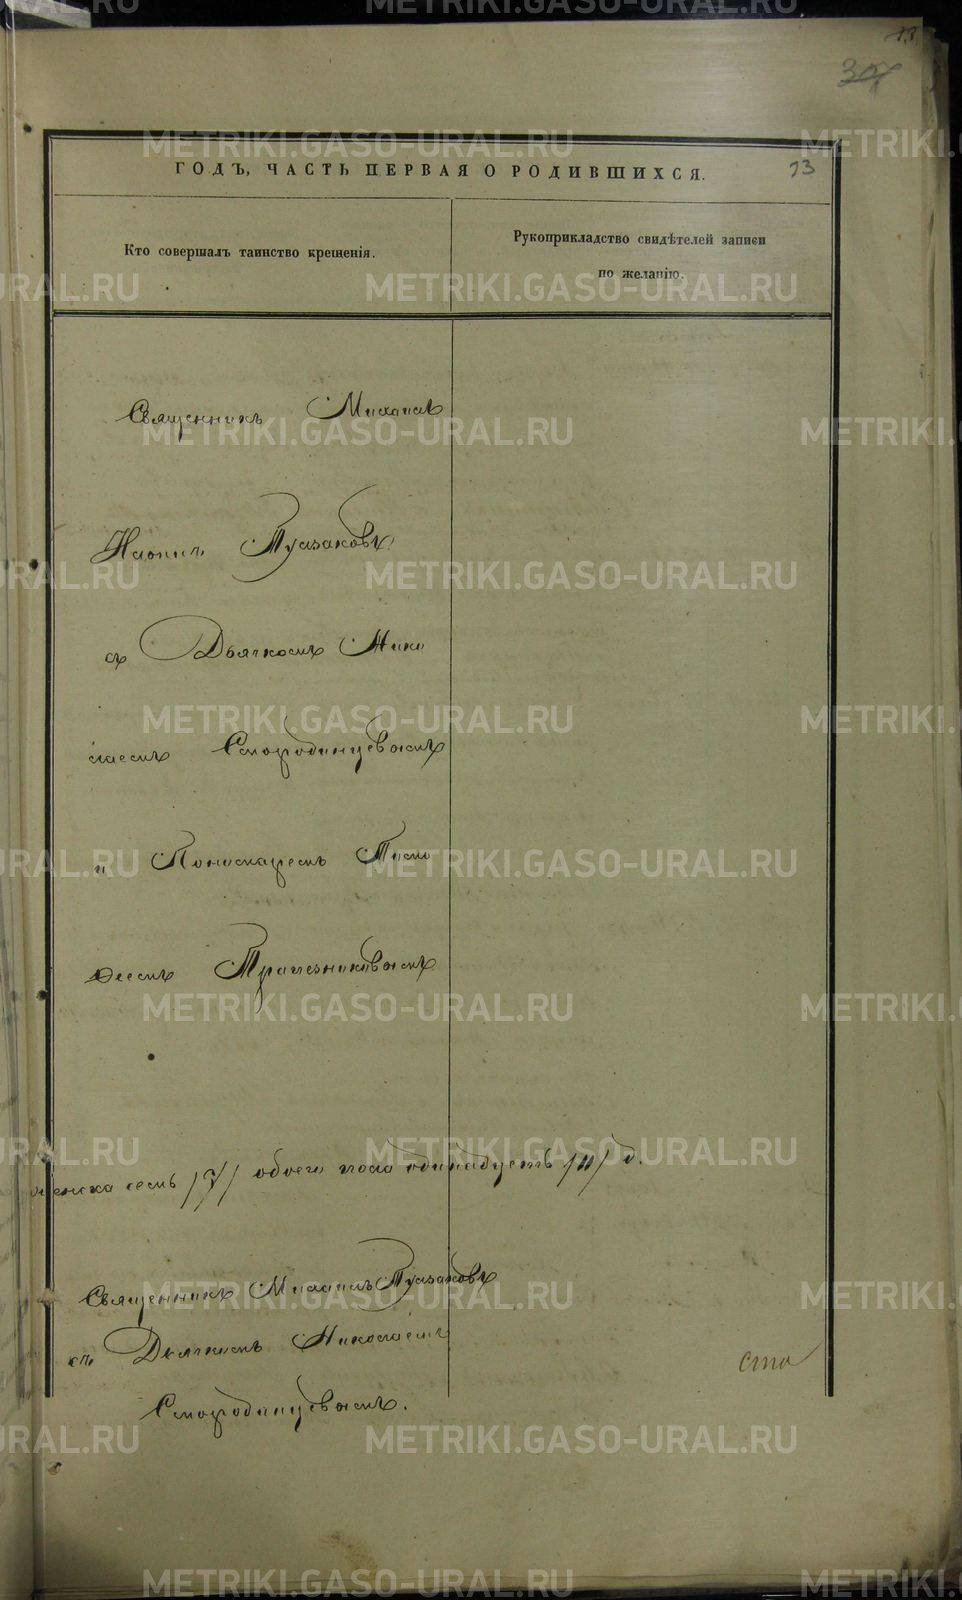 13
307
ГОДЪ, ЧАСТЬ ПЕРВАЯ О РОДИВШИХСЯ.
13
Кто совершалъ таинство крещенія.
Рукоприкладство свидѣтелей записи
по желанію.
Священникъ Михаилъ
Туазаковъ
съ Дьячкомъ Нико
лаемъ Смородинцевымъ
и Пономаремъ Тимо
ѳеемъ Трапезниковымъ
женска семь /7/ обоего пола одинадцеть /11/ д.
Священникъ Михаилъ Туазаковъ
съ Дьячкомъ Николаемъ
Смородинцевымъ.
METRIKI.GASO-URAL.RU